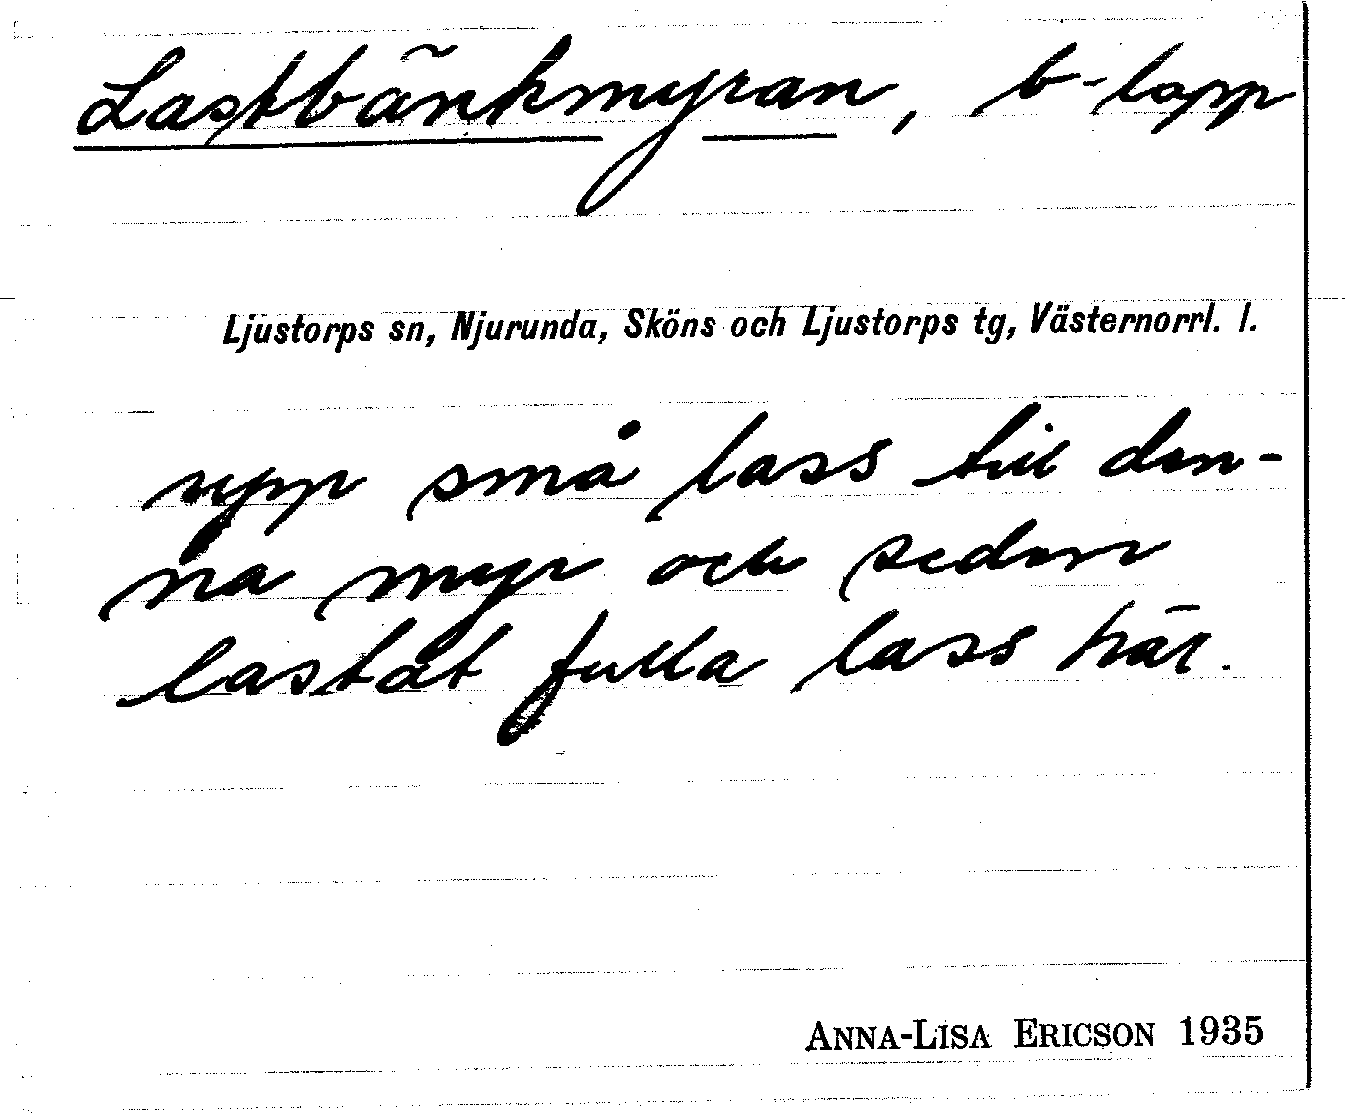 Lastbänkmyran, b-lapp
Ljustorps sn, Njurunda, Sköns och Ljustorps tg, Västernorrl. l.
upp små lass till den-
na myr och sedan
lastat fulla lass här.
ANNA-LISA ERICSON 1935